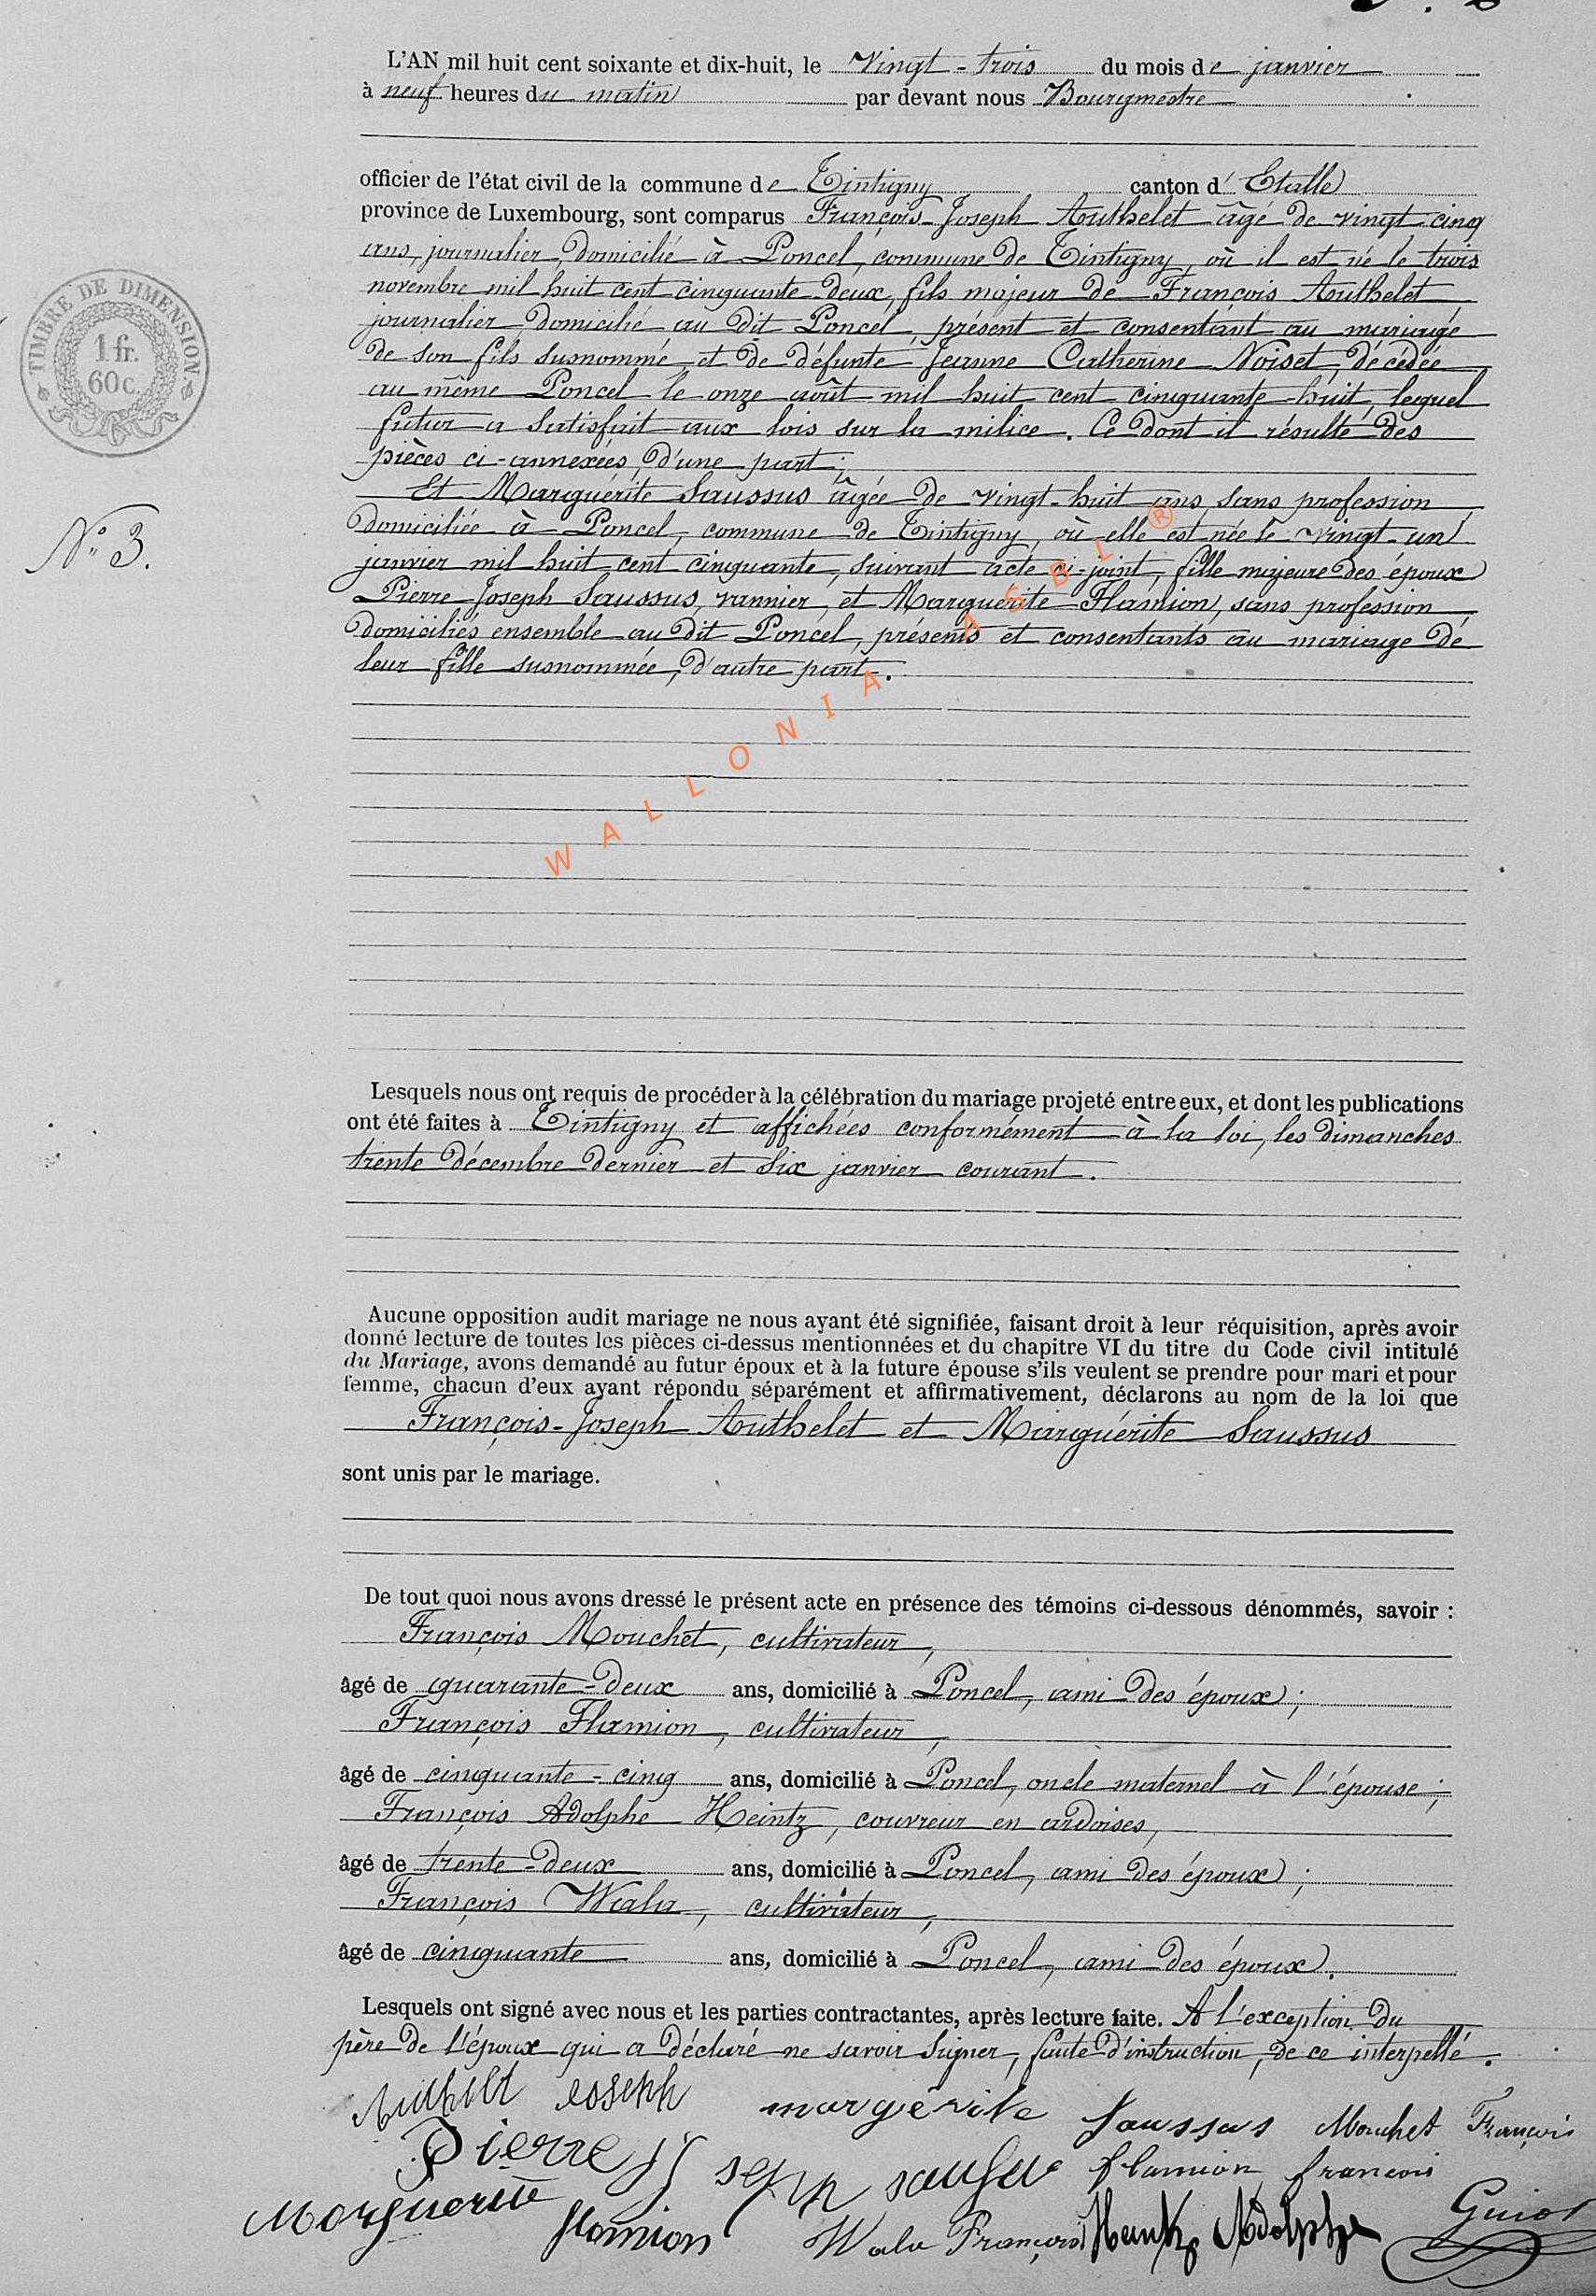 L'AN mil huit cent soixante et dix-huit, le Vingt-trois du mois de janvier
à neuf heures du matin par devant nous Bourgmestre
officier de l'état civil de la commune de Tintigny canton d'Etalle
province de Luxembourg, sont comparus François-Joseph Authelet âgé de vingt-cinq
ans, journalier, domicilié à Poncel, commune de Tintigny, où il est né le trois
novembre mil huit cent cinquante-deux, fils majeur de François Authelet
journalier domicilié au dit Poncel, présent et consentant au mariage
de son fils susnommé, et de défunte Jeanne Catherine Noiset, décédée
au même Poncel le onze août mil huit cent cinquante-huit, lequel
futur a satisfait aux lois sur la milice. Ce dont il résulte des
pièces ci-annexées, d'une part;
TIMBRE DE DIMENSION
1 fr.
60 c.
Nº 3.
Et Marguérite Saussus âgée de vingt-huit ans, sans profession,
domiciliée à Poncel, commune de Tintigny, où elle est née le vingt-un
janvier mil huit cent cinquante, suivant acte ci-joint, fille majeure des époux
Pierre Joseph Saussus, vannier, et Marguerite Flamion, sans profession
domiciliés ensemble au dit Poncel, présents et consentants au mariage de
leur fille susnommée, d'autre part.
WALLONIA ASBL ®
Lesquels nous ont requis de procéder à la célébration du mariage projeté entre eux, et dont les publications
ont été faites à Tintigny et affichées conformément à la loi, les dimanches
trente décembre dernier et six janvier courant.
Aucune opposition audit mariage ne nous ayant été signifiée, faisant droit à leur réquisition, après avoir
donné lecture de toutes les pièces ci-dessus mentionnées et du chapitre VI du titre du Code civil intitulé
du Mariage, avons demandé au futur époux et à la future épouse s'ils veulent se prendre pour mari et pour
femme, chacun d'eux ayant répondu séparément et affirmativement, déclarons au nom de la loi que
François-Joseph Authelet et Marguérite Saussus
sont unis par le mariage.
De tout quoi nous avons dressé le présent acte en présence des témoins ci-dessous dénommés, savoir :
François Mouchet, cultivateur,
âgé de quarante-deux ans, domicilié à Poncel, ami des époux;
François Flamion, cultivateur,
âgé de cinquante-cinq ans, domicilié à Poncel, oncle maternel à l'épouse;
François Adolphe Heintz, couvreur en ardoises,
âgé de trente-deux ans, domicilié à Poncel, ami des époux;
François Wala, cultivateur,
âgé de cinquante ans, domicilié à Poncel, ami des époux.
Lesquels ont signé avec nous et les parties contractantes, après lecture faite. A l'exception du
père de l'époux qui a déclaré ne savoir signer, faute d'instruction, de ce interpellé.
Authelet Joseph margérite saussus Mouchet François
Pierre saussus flamion francois
Marguerite flamion Wala François Heintz Adolphe Guiot